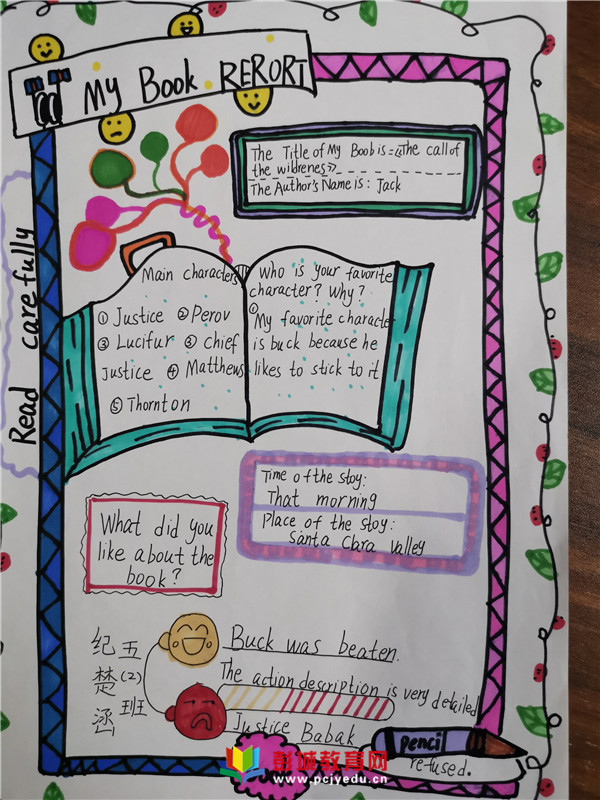 My Book RERORT
Read carefully
The Title of My Boob is:《The call of
the wildrenes》
The Author's Name is: Jack
Main characters
① Justice ② Perov
③ Lucifur ③ Chief
Justice ④ Matthews
⑤ Thornton
Who is your favorite
character? Why?
①
My favorite character
is buck because he
likes to stick to it
Time of the stoy:
That morning
Place of the stoy:
Santa Clara Valley
What did you
like about the
book?
五(2)班
纪楚涵
Buck was beaten.
The action description is very detailed
Justice Babak
refused.
pencil
彭城教育网
www.pcjyedu.cn